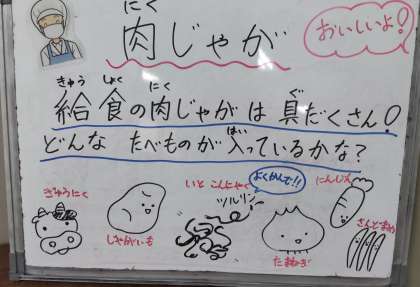 にく
肉じゃが
おいしいよ!
きゅう しょく にく ぐ
給食の肉じゃがは具だくさん!
はい
どんな たべものが入っているかな?
ぎゅうにく
じゃがいも
いと こんにゃく
よくかんで!!
ツルリン
たまねぎ
にんじん
さんどまめ